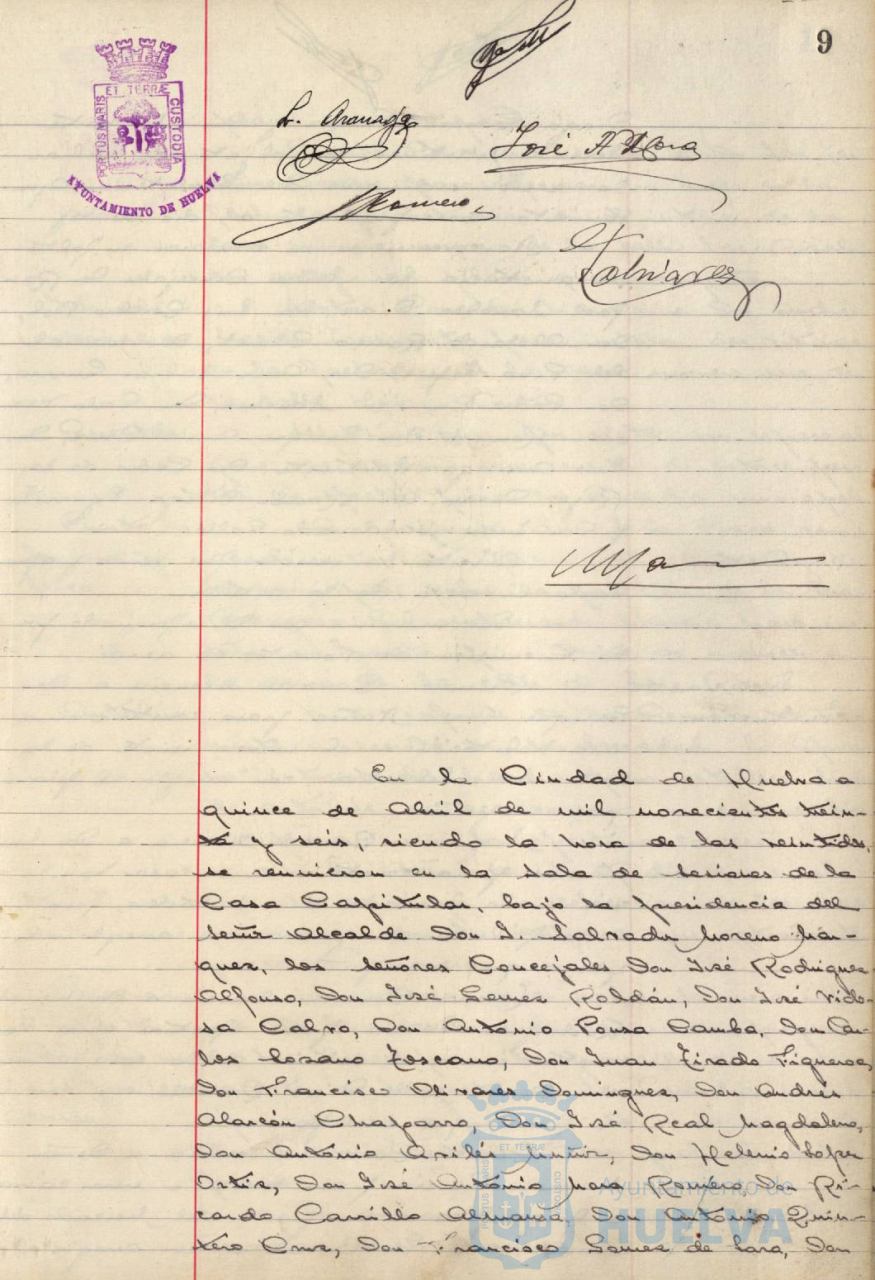 9
ET TERRÆ
PORTUS MARIS
CUSTODIA
AYUNTAMIENTO DE HUELVA
José A Mora
Romero
Olivares
En la Ciudad de Huelva a
quince de Abril de mil novecientos trein-
ta y seis, siendo la hora de las veintidos,
se reunieron en la Sala de Sesiones de la
Casa Capitular, bajo la presidencia del
Señor Alcalde Don J. Salvador Moreno Már-
quez, los señores Concejales Don José Rodriguez
Alfonso, Don José Gomez Roldán, Don José Vido-
sa Calvo, Don Antonio Pousa Camba, Don Car-
los Lozano Toscano, Don Juan Tirado Figueroa,
Don Francisco Olivares Dominguez, Don Andrés
Alarcón Chaparro, Don José Real Magdaleno,
Don António Avilés Muñiz, Don Helenio Lopez
Ortiz, Don José António Mora Romero, Don Ri-
cardo Carrillo Almansa, Don António Quin-
tero Cruz, Don Francisco Gomez de Lara, Don
ET TERRÆ
PORTUS MARIS
CUSTODIA
Ayuntamiento de
HUELVA